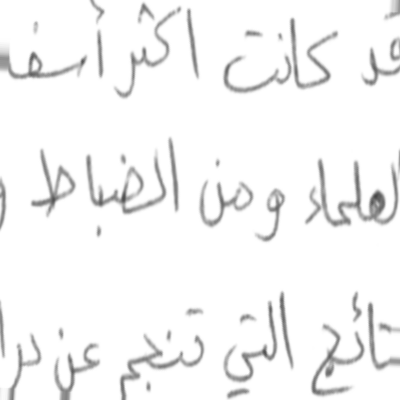 قد كانت اكثر أسفا
لعلماء ومن الضباط و
نتائج التي تنجم عن درا